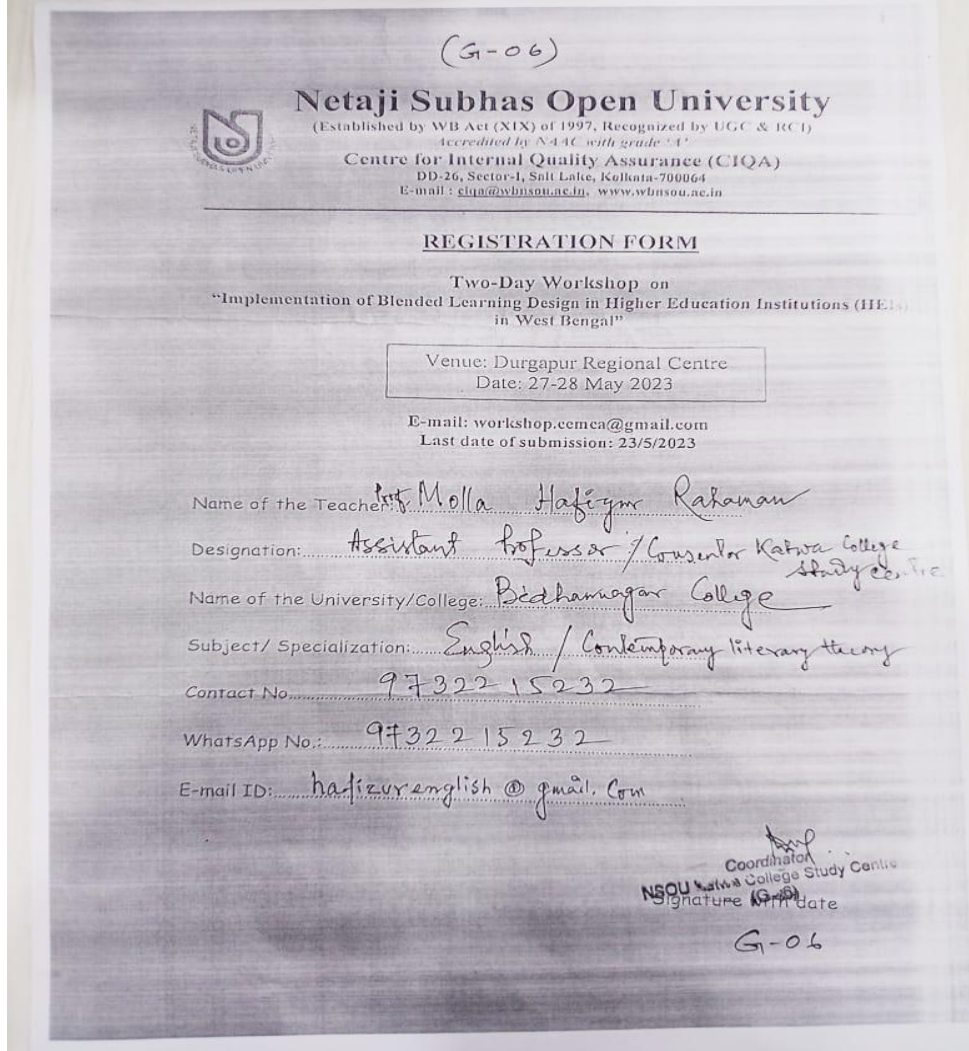 (G-06)
Netaji Subhas Open University
(Established by WB Act (XIX) of 1997, Recognized by UGC & RCI)
Accredited by NAAC with grade 'A'
Centre for Internal Quality Assurance (CIQA)
DD-26, Sector-I, Salt Lake, Kolkata-700064
E-mail : ciqa@wbnsou.ac.in, www.wbnsou.ac.in
REGISTRATION FORM
Two-Day Workshop on
"Implementation of Blended Learning Design in Higher Education Institutions (HEIs)
in West Bengal"
Venue: Durgapur Regional Centre
Date: 27-28 May 2023
E-mail: workshop.cemca@gmail.com
Last date of submission: 23/5/2023
Name of the Teacher: Prof. Molla Rahaman
Designation: Assistant Professor / Katwa College
Study Centre
Name of the University/College: Bidhannagar College
Subject/ Specialization: English / Contemporary literary theory
Contact No. 9732215232
WhatsApp No.: 9732215232
E-mail ID: hafizurenglish@gmail.com
Coordinator
NSOU Katwa College Study Centre
Signature with date
G-06